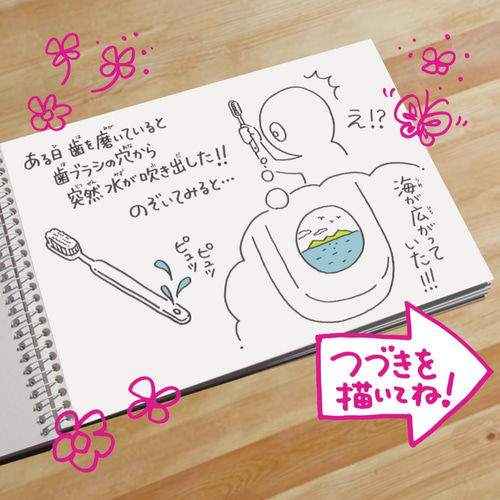 ある日 歯を磨いていると
歯ブラシの穴から
突然 水が吹き出した!!
のぞいてみると…
え!?
ピュッ
ピュッ
海が広がって
いた!!!
つづきを
描いてね!